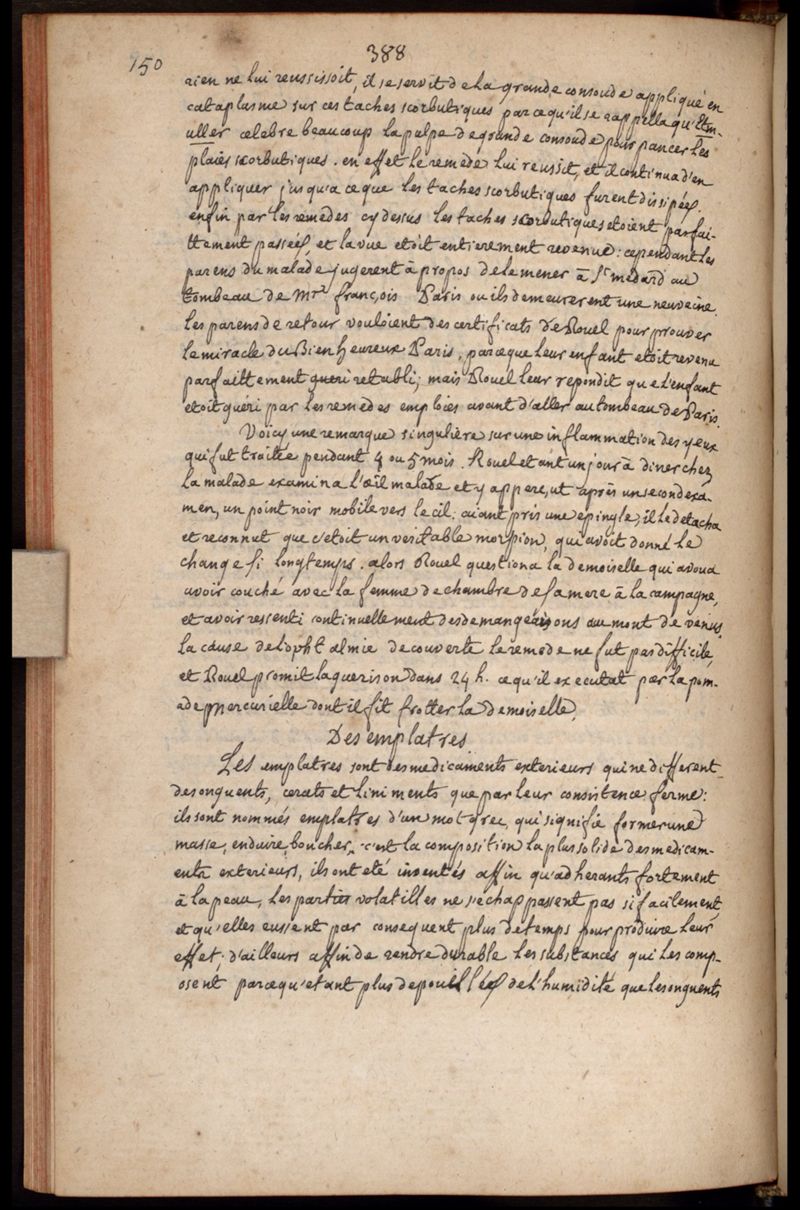 388
150
rien ne lui reussissoit, il se servit de la grande consoude appliqué en
cataplasme sur ces taches scorbutiques parcequ'il se rappella qu'Etm-
uller celebre beaucoup la pulpe de grande consoude pour pancer les
plaies scorbutiques. en effet le remede lui reussit, et il continua d'en
appliquer jusqu'a ce que les taches scorbutiques furent dissipées.
enfin par les remedes cy dessus les taches scorbutiques etoient parfai-
ttement passées, et la vue etoit entierement revenue: cependant les
parens du malade jugerent à propos de le mener à St medard au
tombeau de Mr. françois Paris ou ils demeurerent une neuveine.
les parens de retour vouloient des certificats de Rouel pour prouver
le miracle du Bien heureux Paris, parceque leur enfant etoit revenu
parfaittement gueri retabli; mais Rouel leur repondit que l'enfant
etoit guéri par les remedes emploiés avant d'aller au tombeau de Paris.
Voicy une remarque singulière sur une inflammation des yeux
qui fut traitée pendant 4 ou 5 mois. Rouel etant un jour à diner chez
la malade examina l'œil malade et y apperçut après un second exa-
men, un point noir mobile vers le cil; aiant pris une epingle, il le detacha
et reconnut que c'etoit un veritable morpion, qui avoit donné le
change si longtemps. alors Rouel questiona la demoiselle qui avoua
avoir couché avec la femme de chambre de sa mere à la campagne,
et avoir ressenti continuellement des demangeaisons au mont de venus.
la cause de l'opht almie decouverte le remede ne fut pas difficile,
et Rouel promit la guerison dans 24 h. ce qu'il executat par la pom-
ade mercurielle dont il fit frotter la demoiselle.
Des emplatres
Les emplatres sont des medicaments exterieurs qui ne different
des onguents, cerats et liniments que par leur consistence ferme:
ils sont nommés emplatres d'un mot grec, qui signifie former une
masse, enduire, boucher. c'est la composition la plus solide des medicam-
ents exterieurs, ils ont eté inventés affin qu'adherants fortement
à la peau, les parties volatilles ne s'echappassent pas si facilement,
et qu'elles eussent par consequent plus de temps pour produire leur
effet; d'ailleurs affin de rendre durable les substances qui les comp-
osent parcequ'etant plus depouillées de l'humidité que les onguents